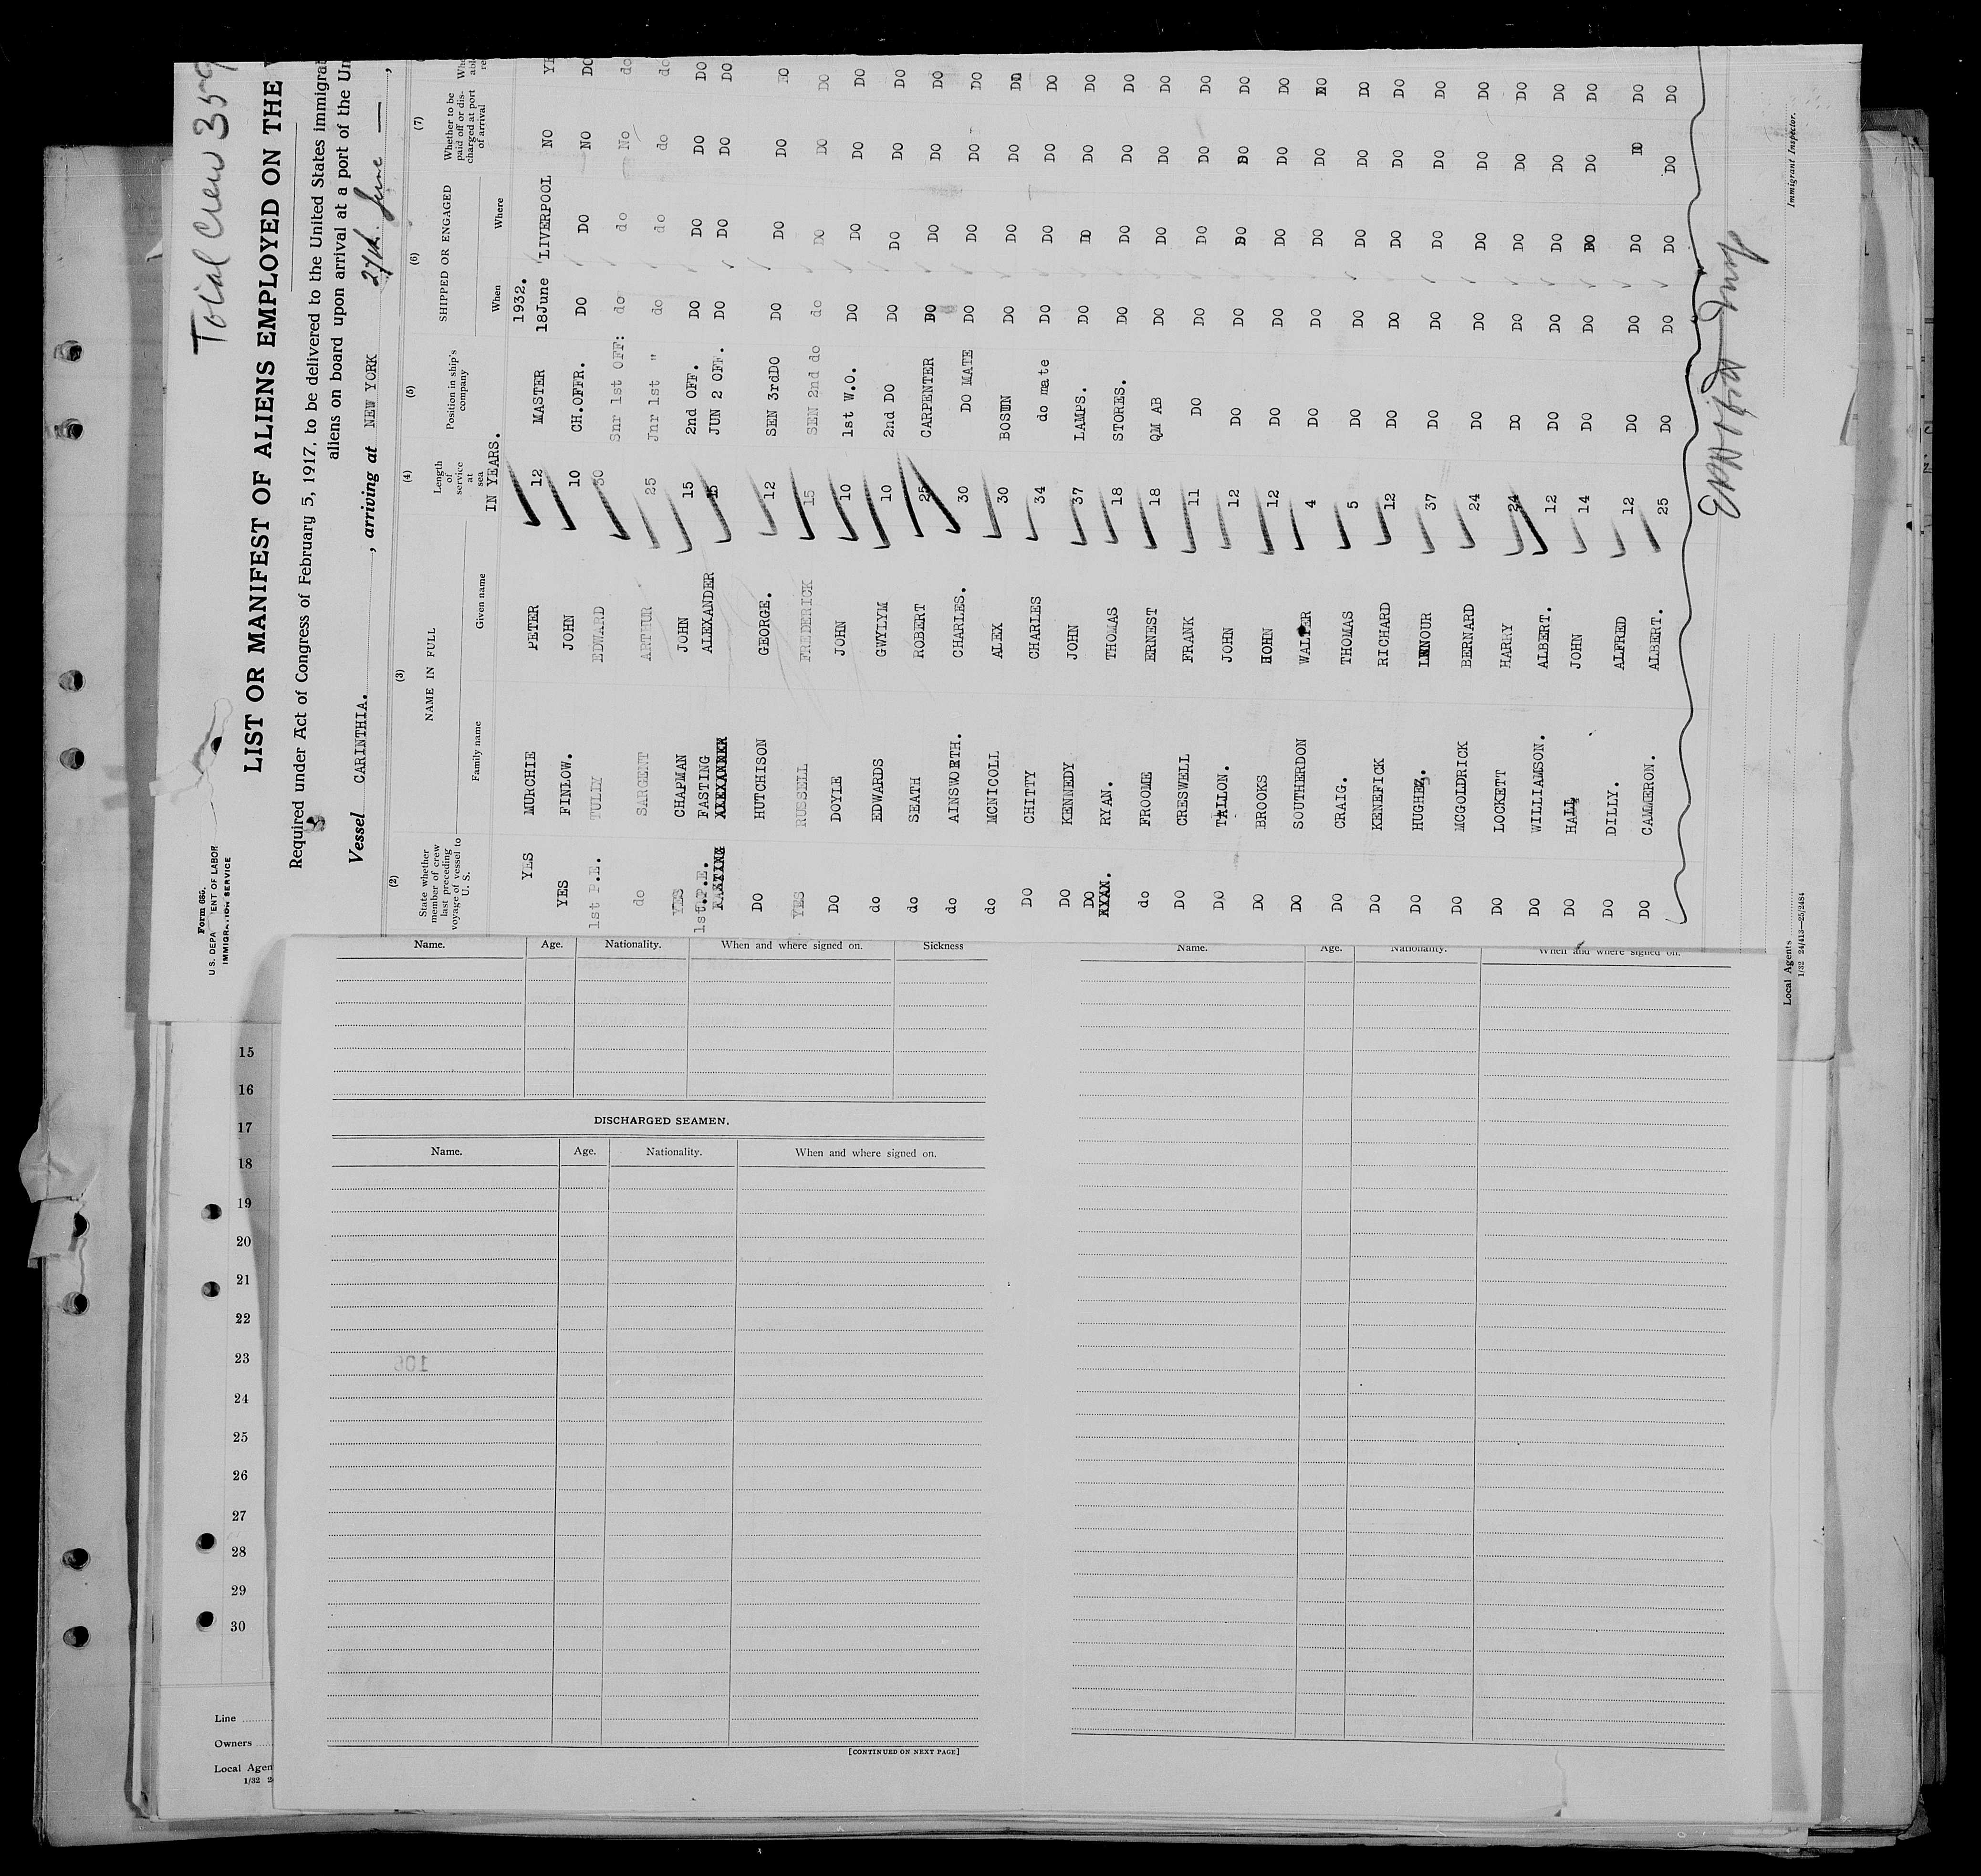 Total Crew 359
Form 680.
U.S. DEPA ENT OF LABOR
IMMIGRATION SERVICE
LIST OR MANIFEST OF ALIENS EMPLOYED ON THE
Required under Act of Congress of February 5, 1917, to be delivered to the United States immigra
aliens on board upon arrival at a port of the Un
Vessel CARINTHIA. , arriving at NEW YORK 27th. June — ,
(2) (3) (4) (5) (6) (7)
State whether member of crew last preceding voyage of vessel to U. S. NAME IN FULL Family name Given name Length of service at sea IN YEARS. Position in ship's company SHIPPED OR ENGAGED When Where Whether to be paid off or discharged at port of arrival
1932.
YES MURCHIE PETER 12 MASTER 18June LIVERPOOL NO YE
YES FINLOW. JOHN 10 CH.OFFR. DO DO NO DO
1st P.E. TULLY EDWARD 30 Snr 1st OFF: do do No do
do SARGENT ARTHUR 25 Jnr 1st " do do do do
YES CHAPMAN JOHN 15 2nd OFF. DO DO DO DO
1st.P.E. FASTING ALEXANDER 15 JUN 2 OFF. DO DO DO DO
DO HUTCHISON GEORGE. 12 SEN 3rdDO DO DO DO DO
YES RUSSELL FREDERICK 15 SEN 2nd do do DO DO DO
DO DOYLE JOHN 10 1st W.O. DO DO DO DO
do EDWARDS GWYLYM 10 2nd DO DO DO DO DO
do SEATH ROBERT 25 CARPENTER DO DO DO DO
do AINSWORTH. CHARLES. 30 DO MATE DO DO DO DO
do MCNICOLL ALEX 30 BOSUN DO DO DO DO
DO CHITTY CHARLES 34 do mate DO DO DO DO
DO KENNEDY JOHN 37 LAMPS. DO DO DO DO
DO RYAN. THOMAS 18 STORES. DO DO DO DO
do FROOME ERNEST 18 QM AB DO DO DO DO
DO CRESWELL FRANK 11 DO DO DO DO DO
DO TALLON. JOHN 12 DO DO DO DO DO
DO BROOKS HOHN 12 DO DO DO DO DO
DO SOUTHERDON WALTER 4 DO DO DO DO DO
DO CRAIG. THOMAS 5 DO DO DO DO DO
DO KENEFICK RICHARD 12 DO DO DO DO DO
DO HUGHEZ. LENOUR 37 DO DO DO DO DO
DO MCGOLDRICK BERNARD 24 DO DO DO DO DO
DO LOCKETT HARRY 24 DO DO DO DO DO
DO WILLIAMSON. ALBERT. 12 DO DO DO DO DO
DO HALL JOHN 14 DO DO DO DO DO
DO DILLY. ALFRED 12 DO DO DO DO DO
DO CAMMERON. ALBERT. 25 DO DO DO DO DO
Immigrant Inspector.
Local Agents
1/32 24/413—25/2484
Name. Age. Nationality. When and where signed on. Sickness
Name. Age. Nationality. When and where signed on.
DISCHARGED SEAMEN.
Name. Age. Nationality. When and where signed on.
106
[CONTINUED ON NEXT PAGE]
15
16
17
18
19
20
21
22
23
24
25
26
27
28
29
30
Line
Owners
Local Agen
1/32 2